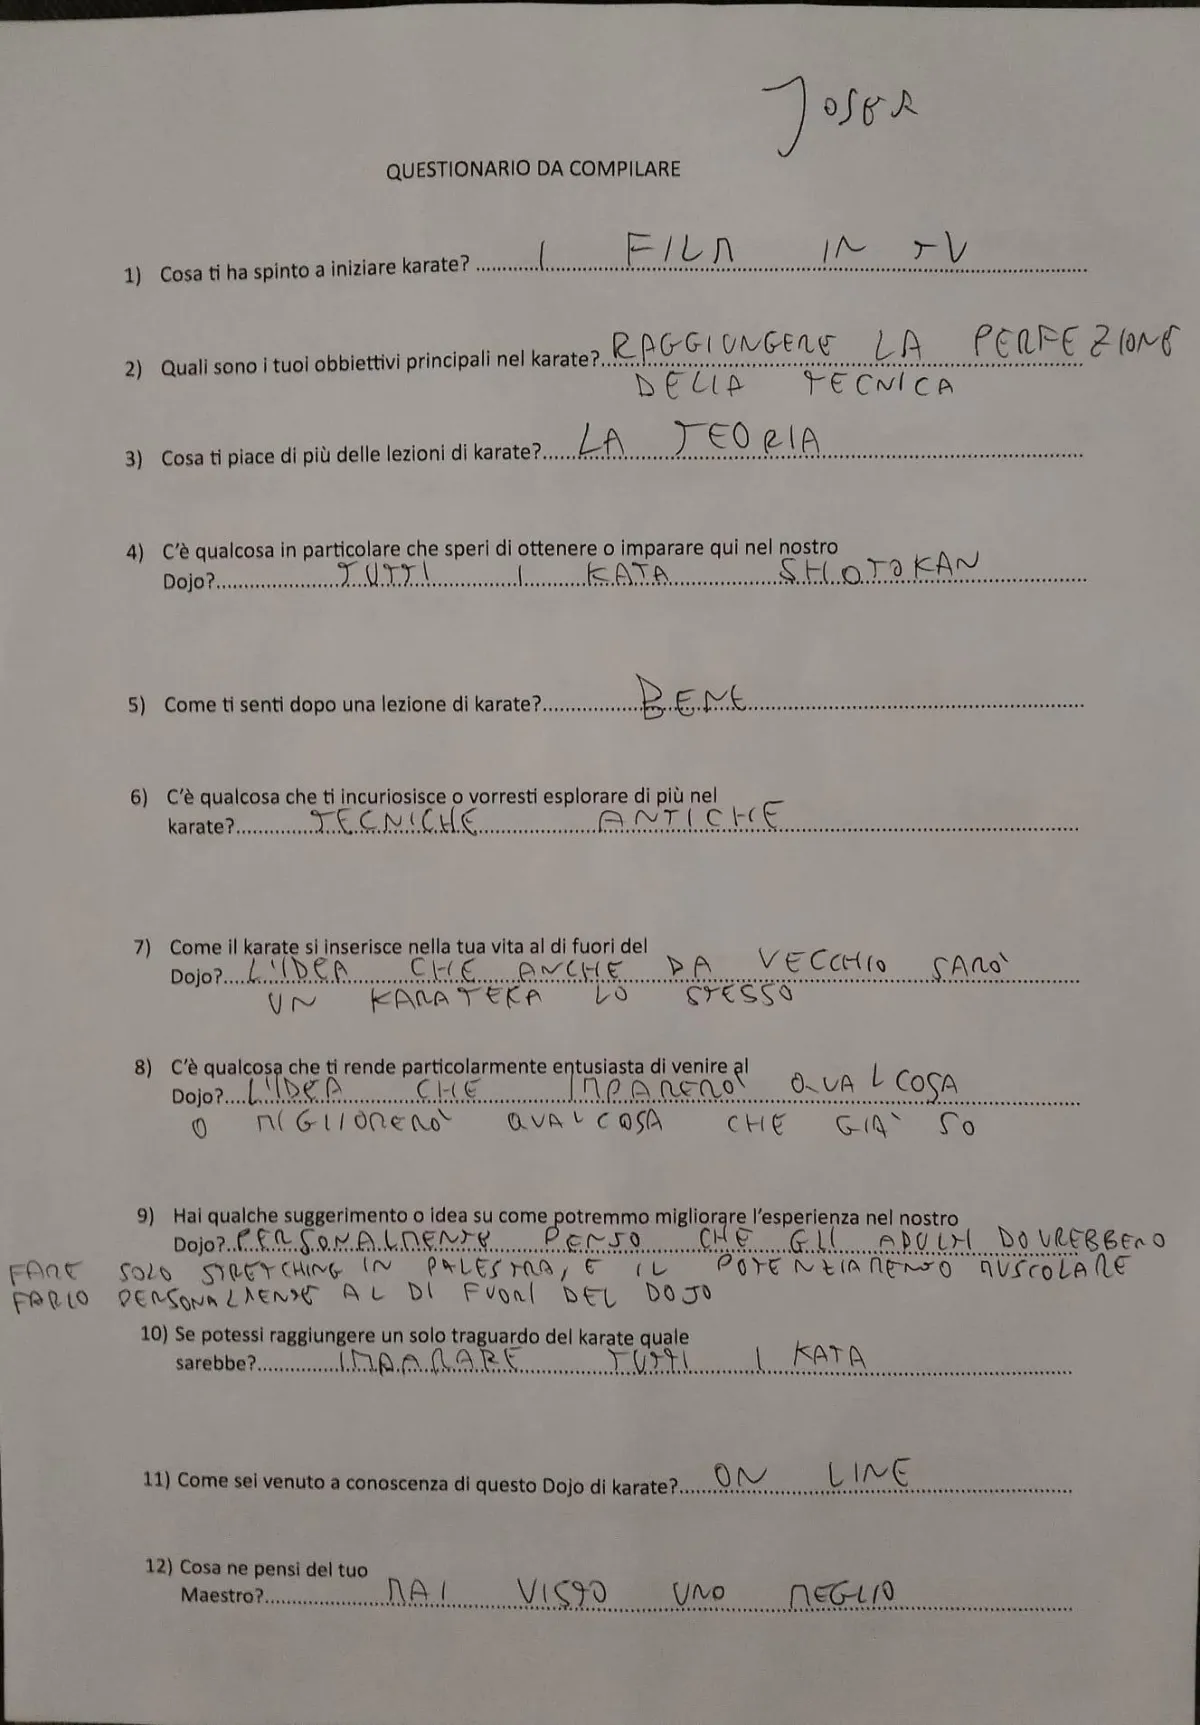 JOSER
QUESTIONARIO DA COMPILARE
1) Cosa ti ha spinto a iniziare karate? I FILM IN TV
2) Quali sono i tuoi obbiettivi principali nel karate? RAGGIUNGERE LA PERFEZIONE
DELLA TECNICA
3) Cosa ti piace di più delle lezioni di karate? LA TEORIA
4) C'è qualcosa in particolare che speri di ottenere o imparare qui nel nostro
Dojo? TUTTI I KATA SHOTOKAN
5) Come ti senti dopo una lezione di karate? BENE
6) C'è qualcosa che ti incuriosisce o vorresti esplorare di più nel
karate? TECNICHE ANTICHE
7) Come il karate si inserisce nella tua vita al di fuori del
Dojo? L'IDEA CHE ANCHE DA VECCHIO SARO'
UN KARATEKA LO STESSO
8) C'è qualcosa che ti rende particolarmente entusiasta di venire al
Dojo? L'IDEA CHE IMPARERO' QUALCOSA
O MIGLIORERO' QUALCOSA CHE GIA' SO
9) Hai qualche suggerimento o idea su come potremmo migliorare l'esperienza nel nostro
Dojo? PERSONALMENTE PENSO CHE GLI ADULTI DOVREBBERO
FARE SOLO STRETCHING IN PALESTRA, E IL POTENZIAMENTO MUSCOLARE
FARLO PERSONALMENTE AL DI FUORI DEL DOJO
10) Se potessi raggiungere un solo traguardo del karate quale
sarebbe? IMPARARE TUTTI I KATA
11) Come sei venuto a conoscenza di questo Dojo di karate? ON LINE
12) Cosa ne pensi del tuo
Maestro? MAI VISTO UNO MEGLIO